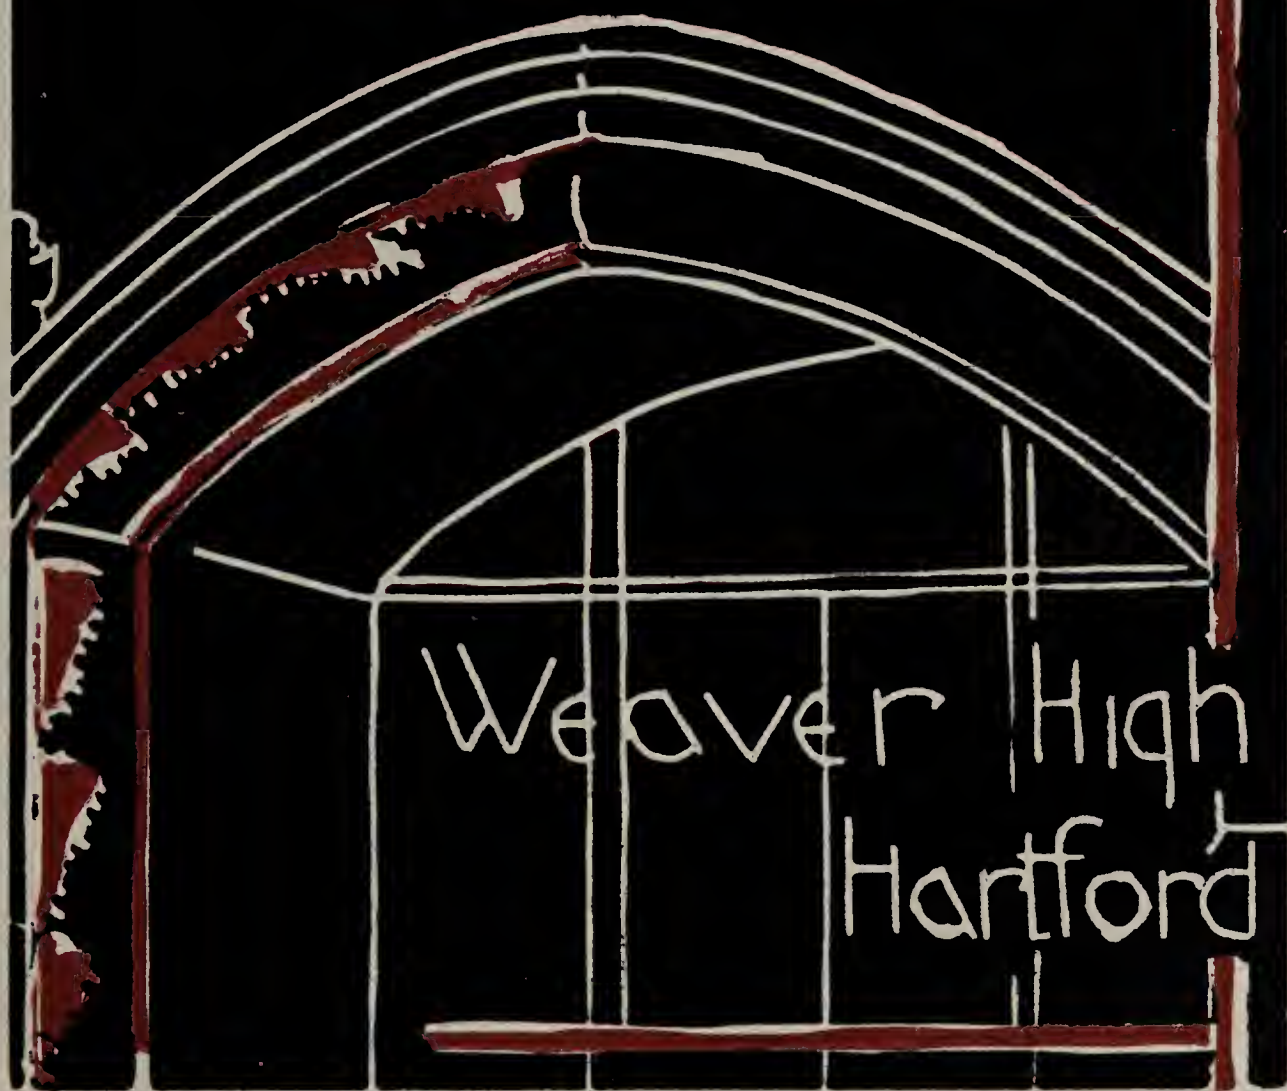 Weaver High
Hartford